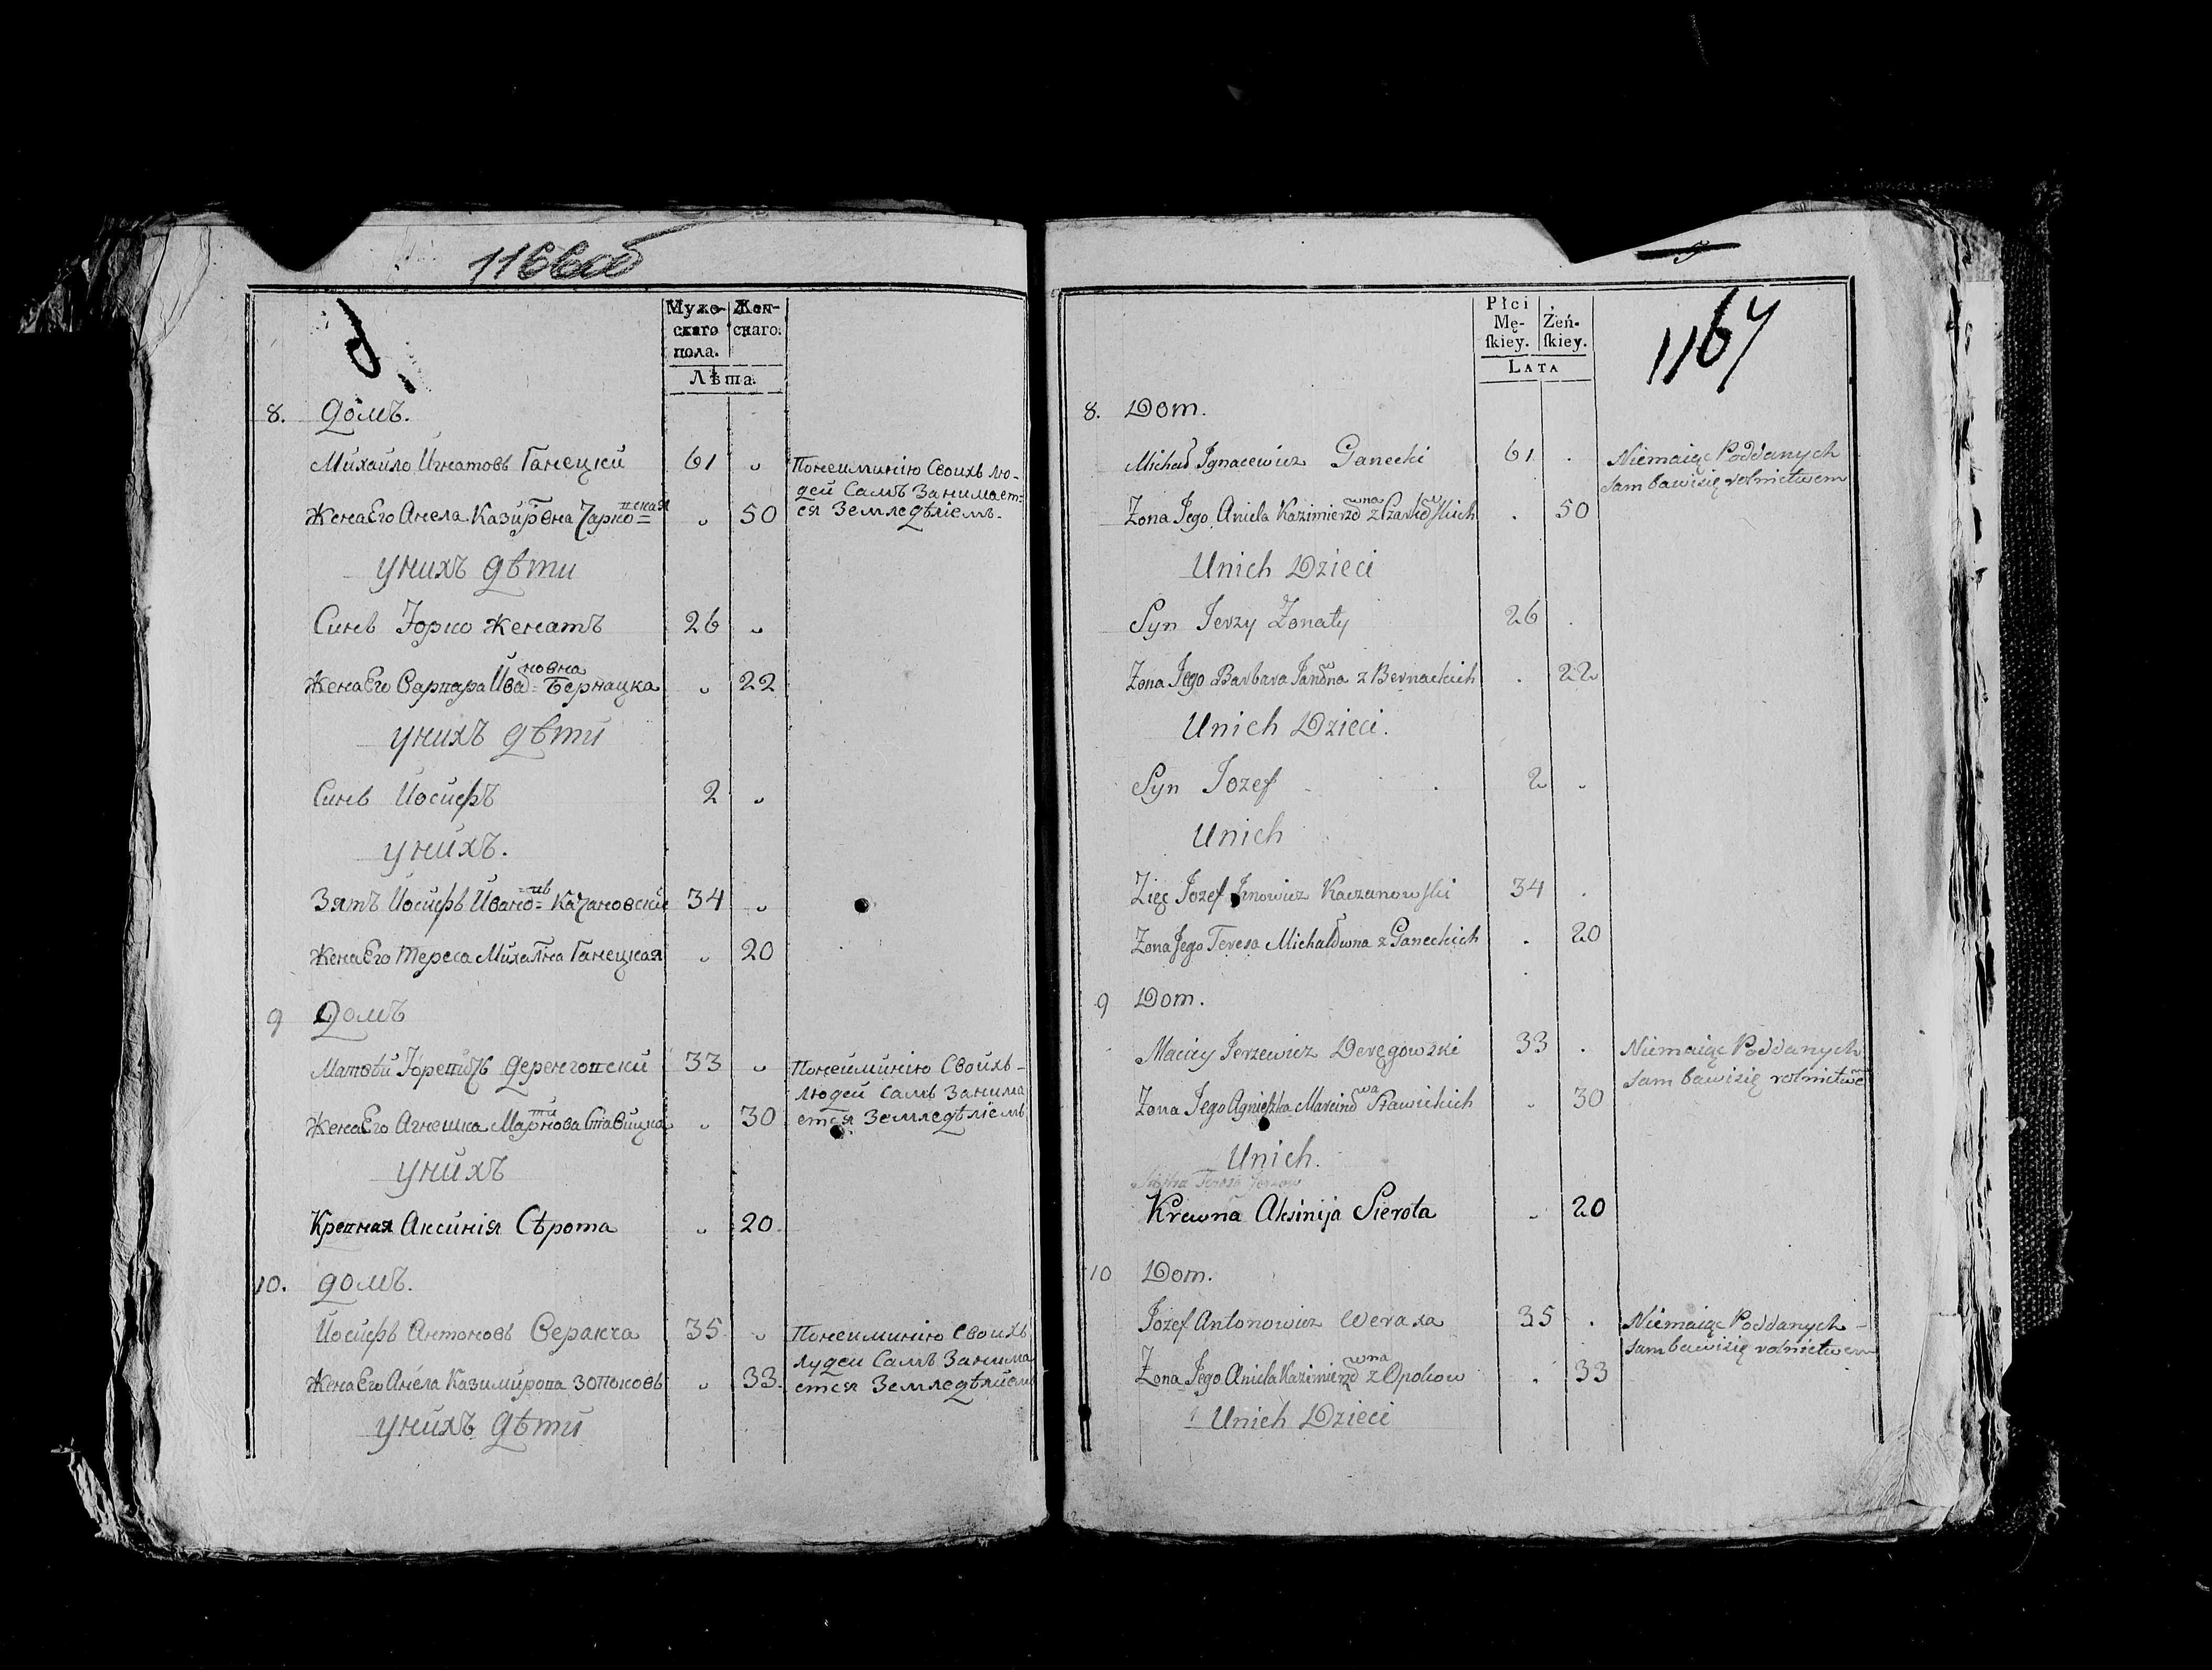 1166об
Мужескаго пола. Женскаго.
Лѣта.
8. Домъ.
Михайло Игнатовъ Ганецки 61
Понеиминію Своихъ лю-
дей Самъ Занимает-
ся Земледѣліемъ.
Жена Его Анела Казимѣрвна 50
У нихъ дѣти
Синъ Юрко женатъ 26
Жена Его Варвара Ивановна Бернацка 22
У нихъ дѣти
Синъ Иосифъ 2
У нихъ.
Зятъ Иосифъ Ивановъ Качановски 34
Жена Его Тереса Михална Ганецкая 20
9 Домъ
Матвѣй Деренговски 33
Понеиминію Своихъ
людей Самъ Занима
ется Земледѣліемъ
Жена Его Агнешка Мартинова Ставицка 30
У нихъ
Кревная Аксинія Сѣрота 20
10. Домъ.
Иосифъ Антоновъ Веракса 35
Понеиминію Своихъ
лудеи Самъ Занима
ется
Жена Его Анела Казимирова Зопоковъ 33
У нихъ дѣти
1167
Płci Męskiey. Żeńskiey.
LATA
8. Dom.
Michał Ignacewicz Ganecki 61
Niemaiąc Poddanych
Sam bawisię rolnictwem
Zona Jego Aniela Kazimierzowna 50
Unich Dzieci
Syn Jerzy Zonaty 26
Zona Jego Barbara Janowna z Bernackich 22
Unich Dzieci.
Syn Jozef 2
Unich
Zięc Jozef Janowicz Kaczanowski 34
Zona Jego Teresa Michałowna z Ganeckich 20
9 Dom.
Maciey Jerzewicz Deręgowski 33
Niemaiąc Poddanych
Sam bawisię rolnictwem
Zona Jego Agnieszka Marcinowa Stawickich 30
Unich.
Krewna Aksinija Sierota 20
10 Dom.
Jozef Antonowicz Weraxa 35
Niemaiąc Poddanych
Sam bawisię rolnictwem
Zona Jego Aniela Kazimierzowna z Opokow 33
Unich Dzieci